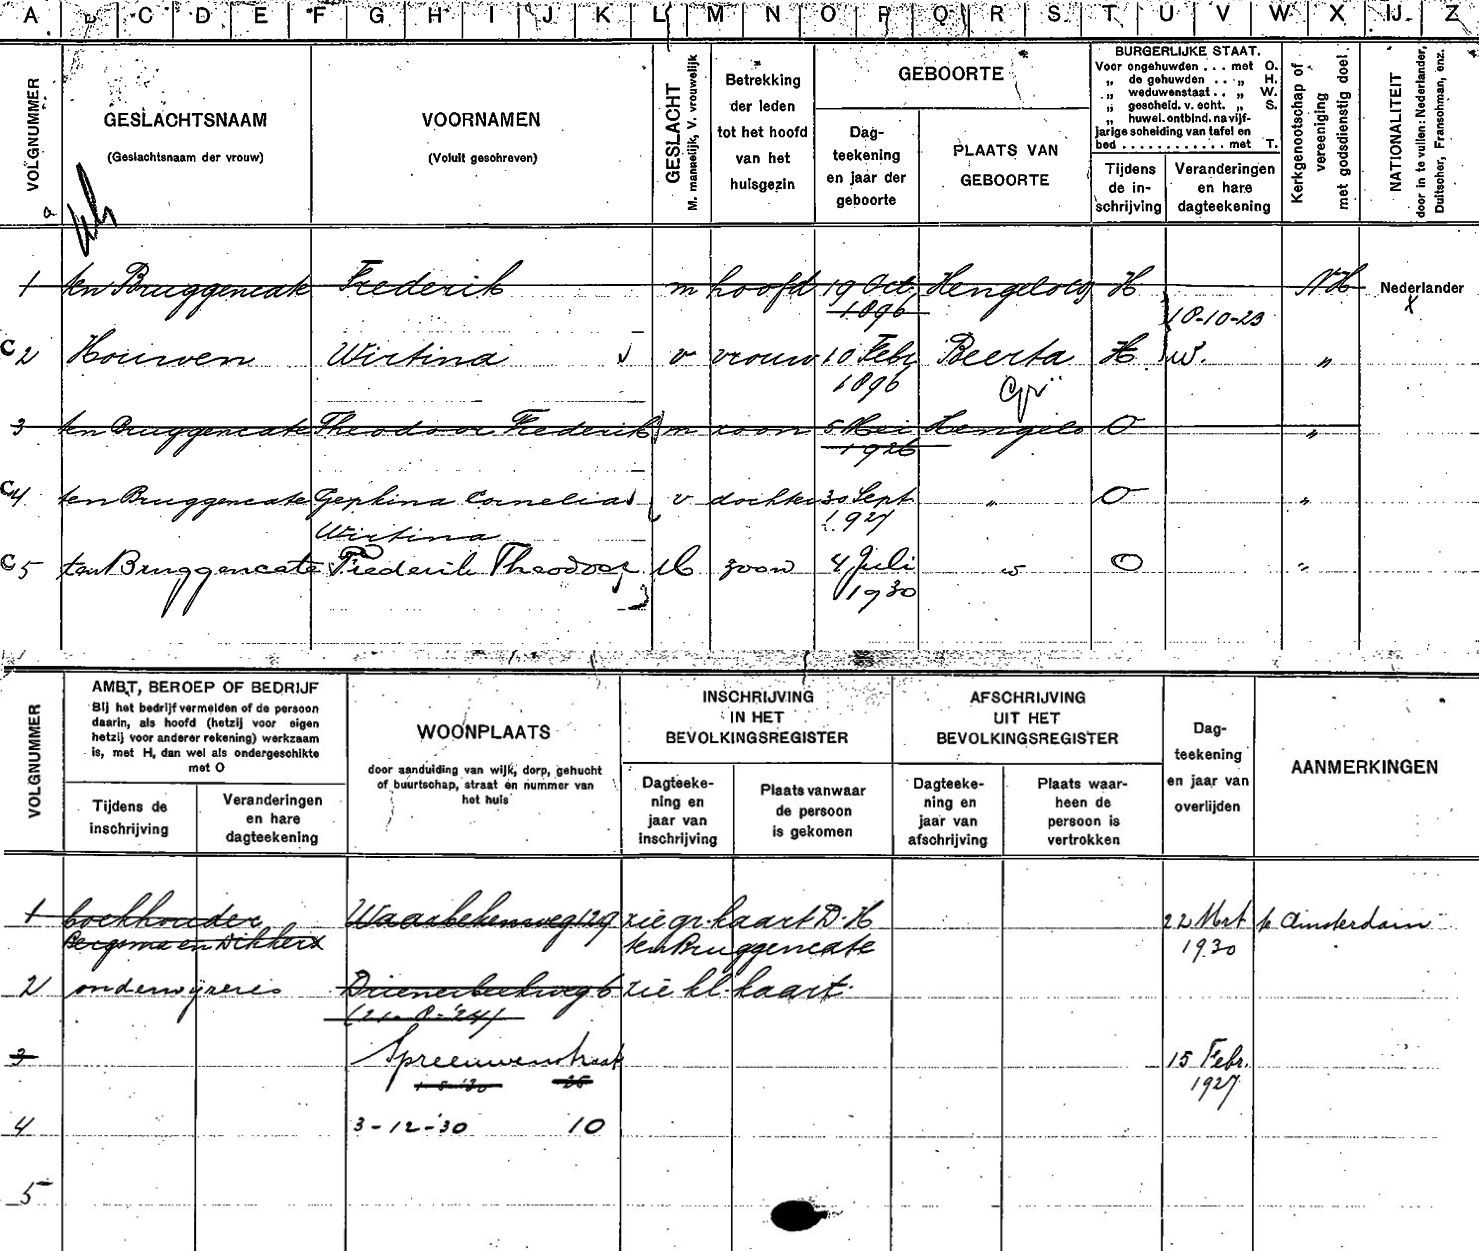 A B C D E F G H I J K L M N O P Q R S T U V W X IJ Z
VOLGNUMMER
GESLACHTSNAAM
(Geslachtsnaam der vrouw)
VOORNAMEN
(Voluit geschreven)
GESLACHT
M. mannelijk, V. vrouwelijk
Betrekking
der leden
tot het hoofd
van het
huisgezin
GEBOORTE
Dag-
teekening
en jaar der
geboorte
PLAATS VAN
GEBOORTE
BURGERLIJKE STAAT.
Voor ongehuwden . . . met O.
„ de gehuwden . . „ H.
„ weduwenstaat . . „ W.
„ gescheid. v. echt. „ S.
„ huwel. ontbind. na vijf-
jarige scheiding van tafel en
bed . . . . . . . . . . . . met T.
Tijdens
de in-
schrijving
Veranderingen
en hare
dagteekening
Kerkgenootschap of
vereeniging
met godsdienstig doel.
NATIONALITEIT
door in te vullen: Nederlander,
Duitscher, Franschman, enz.
1 ten Bruggencate Frederik m hoofd 19 Oct Hengelo H NH Nederlander
1896 18-10-23 x
C 2 Houwen Wirtina v vrouw 10 Febr Beerta H W. „
1896 Gr
3 ten Bruggencate Theodoor Frederik m zoon 5 Mei Hengelo O „
1926
C 4 ten Bruggencate Gepkina Cornelia v dochter 30 Sept „ O „
Wirtina 1927
C 5 ten Bruggencate Frederik Theodoor M zoon 4 Juli „ O „
1930
VOLGNUMMER
AMBT, BEROEP OF BEDRIJF
Bij het bedrijf vermelden of de persoon
daarin, als hoofd (hetzij voor eigen
hetzij voor anderer rekening) werkzaam
is, met H, dan wel als ondergeschikte
met O
Tijdens de
inschrijving
Veranderingen
en hare
dagteekening
WOONPLAATS
door aanduiding van wijk, dorp, gehucht
of buurtschap, straat en nummer van
het huis
INSCHRIJVING
IN HET
BEVOLKINGSREGISTER
Dagteeke-
ning en
jaar van
inschrijving
Plaats vanwaar
de persoon
is gekomen
AFSCHRIJVING
UIT HET
BEVOLKINGSREGISTER
Dagteeke-
ning en
jaar van
afschrijving
Plaats waar-
heen de
persoon is
vertrokken
Dag-
teekening
en jaar van
overlijden
AANMERKINGEN
1 boekhouder Waarbekenweg 129 zie gr. kaart D. H 22 Mrt te Amsterdam
en Dikkers ten Bruggencate 1930
2 onderwijzeres Drienerbeekweg 6 zie kl. kaart
3 Spreeuwenstraat 15 Febr.
1-5-'30 26 1927
4 3-12-'30 10
5